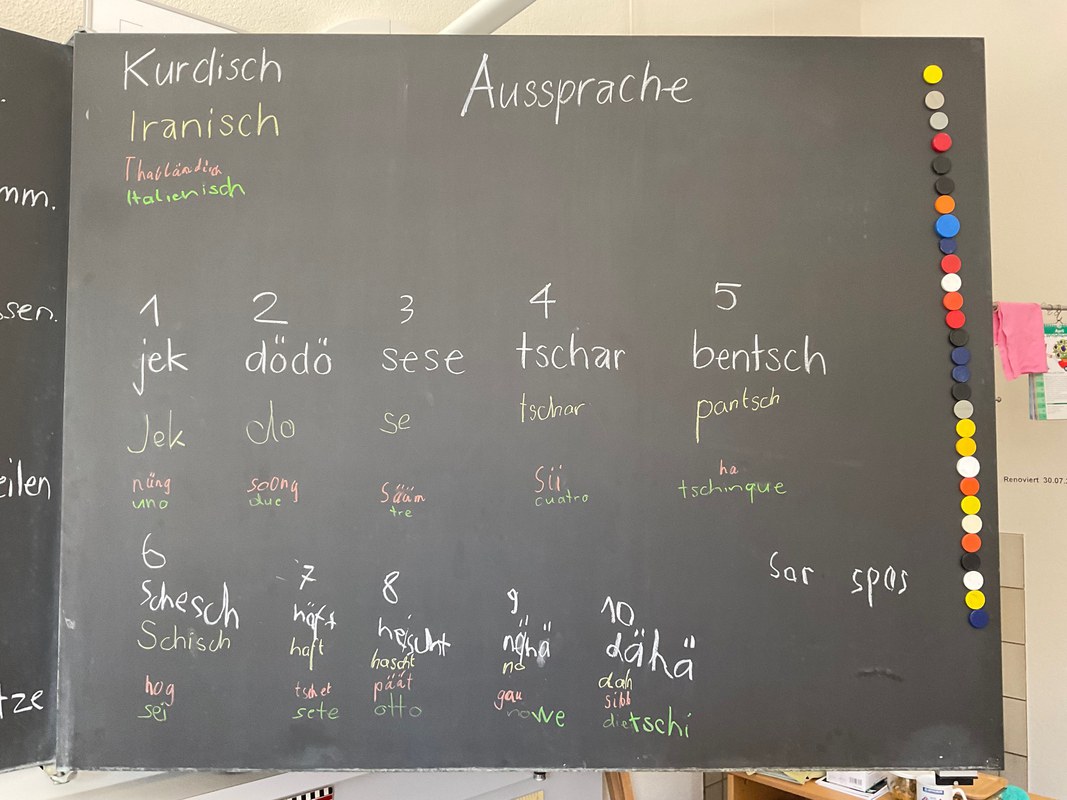 Kurdisch
Aussprache
Iranisch
Thailändisch
Italienisch
mm.
ssen.
eilen
tze
1 2 3 4 5
jek dödö sese tschar bentsch
Jek do se tschar pantsch
nüng soong säüm sii ha
uno due tre cuatro tschinque
6 7 8 9 10
schesch häft heischt nöhä dähä
Schisch haft hascht no dah
hog tschet päät gau sibb
sei sete otto nowe dietschi
Sar spas
Renoviert 30.07.
April